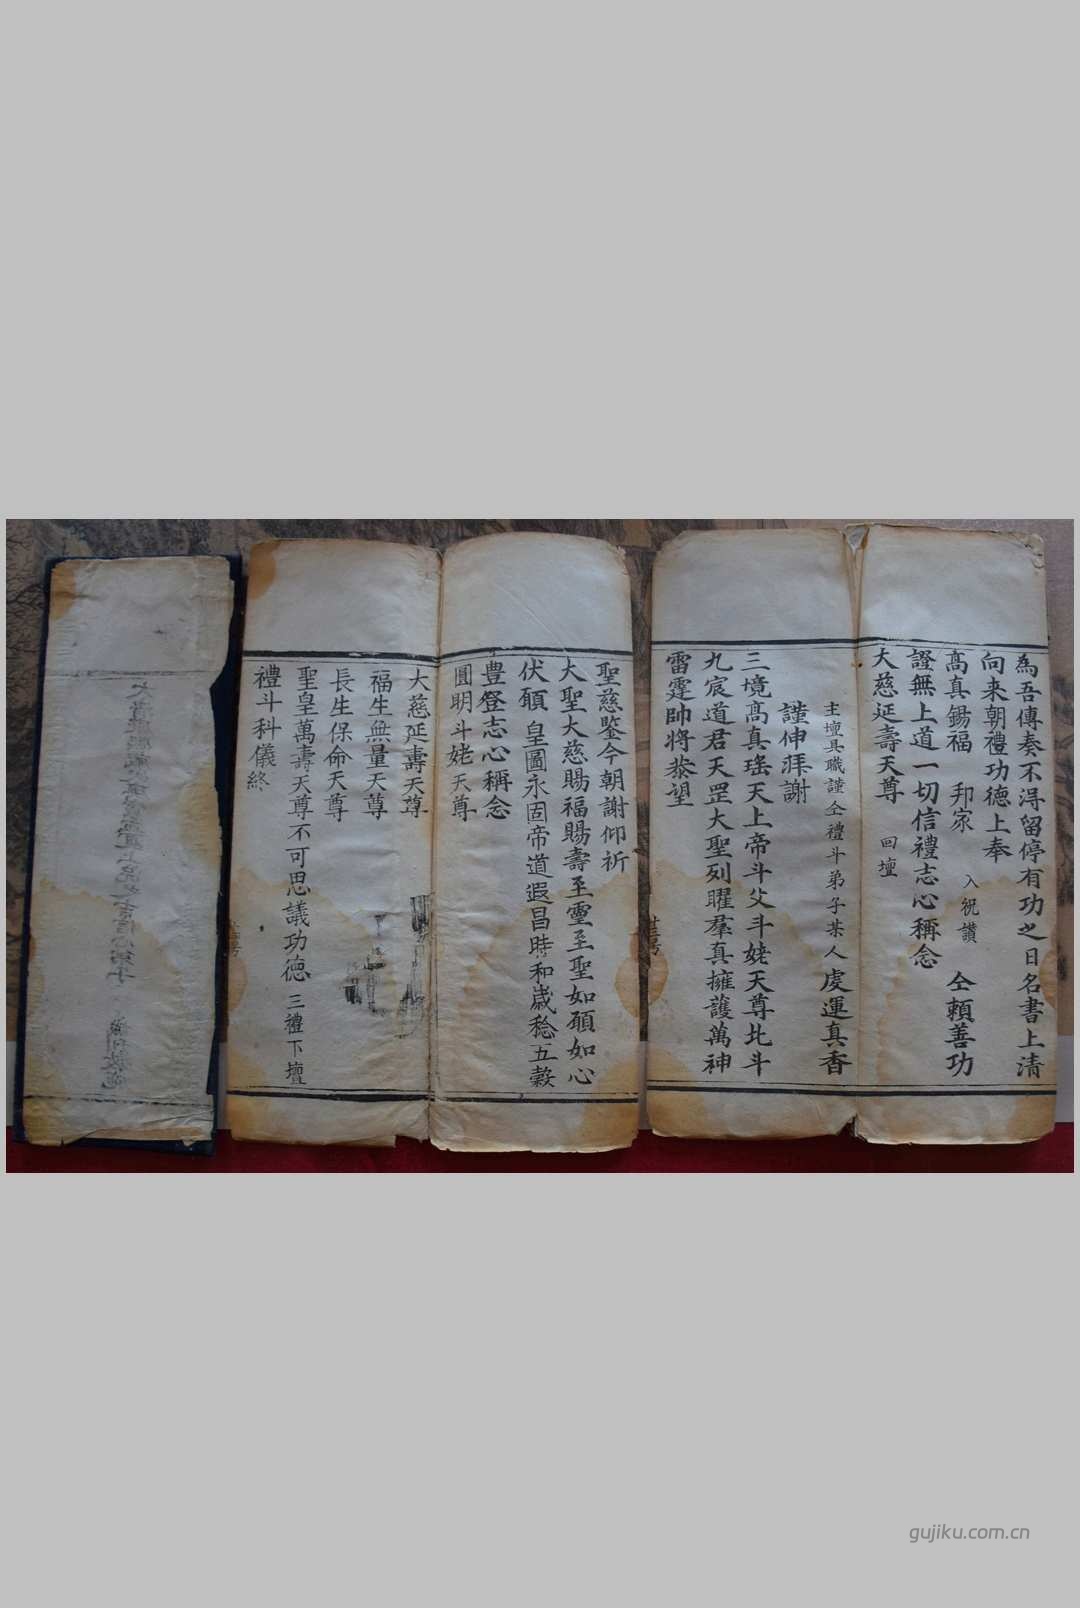 為吾傳奏不淂留停有功之日名書上清
向来朝禮功德上奉
高真錫福　邦家　入祝讚　仝賴善功
證無上道一切信禮志心稱念
大慈延壽天尊　回壇
主壇具職謹仝禮斗弟子某人虔運真香
謹伸拜謝
三境高真瑤天上帝斗父斗姥天尊北斗
九宸道君天罡大聖列曜羣真擁護萬神
雷霆帥將恭望
聖慈鑒今朝謝仰祈
大聖大慈賜福賜壽至靈至聖如願如心
伏願　皇圖永固帝道遐昌時和歲稔五穀
豊登志心稱念
圓明斗姥天尊
大慈延壽天尊
福生無量天尊
長生保命天尊
聖皇萬壽天尊不可思議功德　三禮下壇
禮斗科儀終
gujiku.com.cn